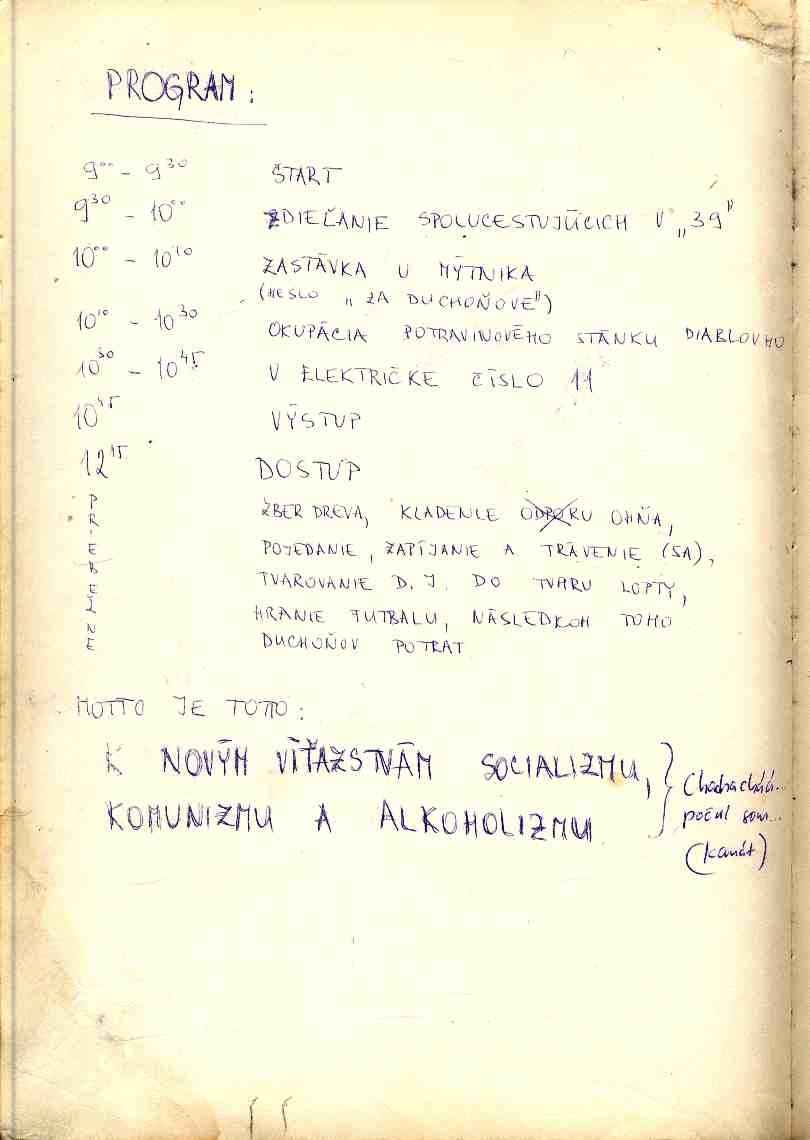 PROGRAM:
9⁰⁰ - 9³⁰ ŠTART
9³⁰ - 10⁰⁰ ZDIEĽANIE SPOLUCESTUJÚCICH V „39"
10⁰⁰ - 10¹⁰ ZASTÁVKA U MÝTNIKA
(HESLO „ZA DUCHOŇOVE")
10¹⁰ - 10³⁰ OKUPÁCIA POTRAVINOVÉHO STÁNKU DIABLOVHO
10³⁰ - 10⁴⁵ V ELEKTRIČKE ČÍSLO 11
10⁴⁵ VÝSTUP
12¹⁵ DOSTUP
PREBEŽNE ZBER DREVA, KLADENIE ODPORU OHŇA,
POJEDANIE, ZAPÍJANIE A TRÁVENIE (SA),
TVAROVANIE D. J. DO TVARU LOPTY,
HRANIE FUTBALU, NÁSLEDKOM TOHO
DUCHOŇOV POTRAT
MOTTO JE TOTO:
K NOVÝM VÍŤAZSTVÁM SOCIALIZMU,
KOMUNIZMU A ALKOHOLIZMU
Chachachááá...
počul som...
(kanát)